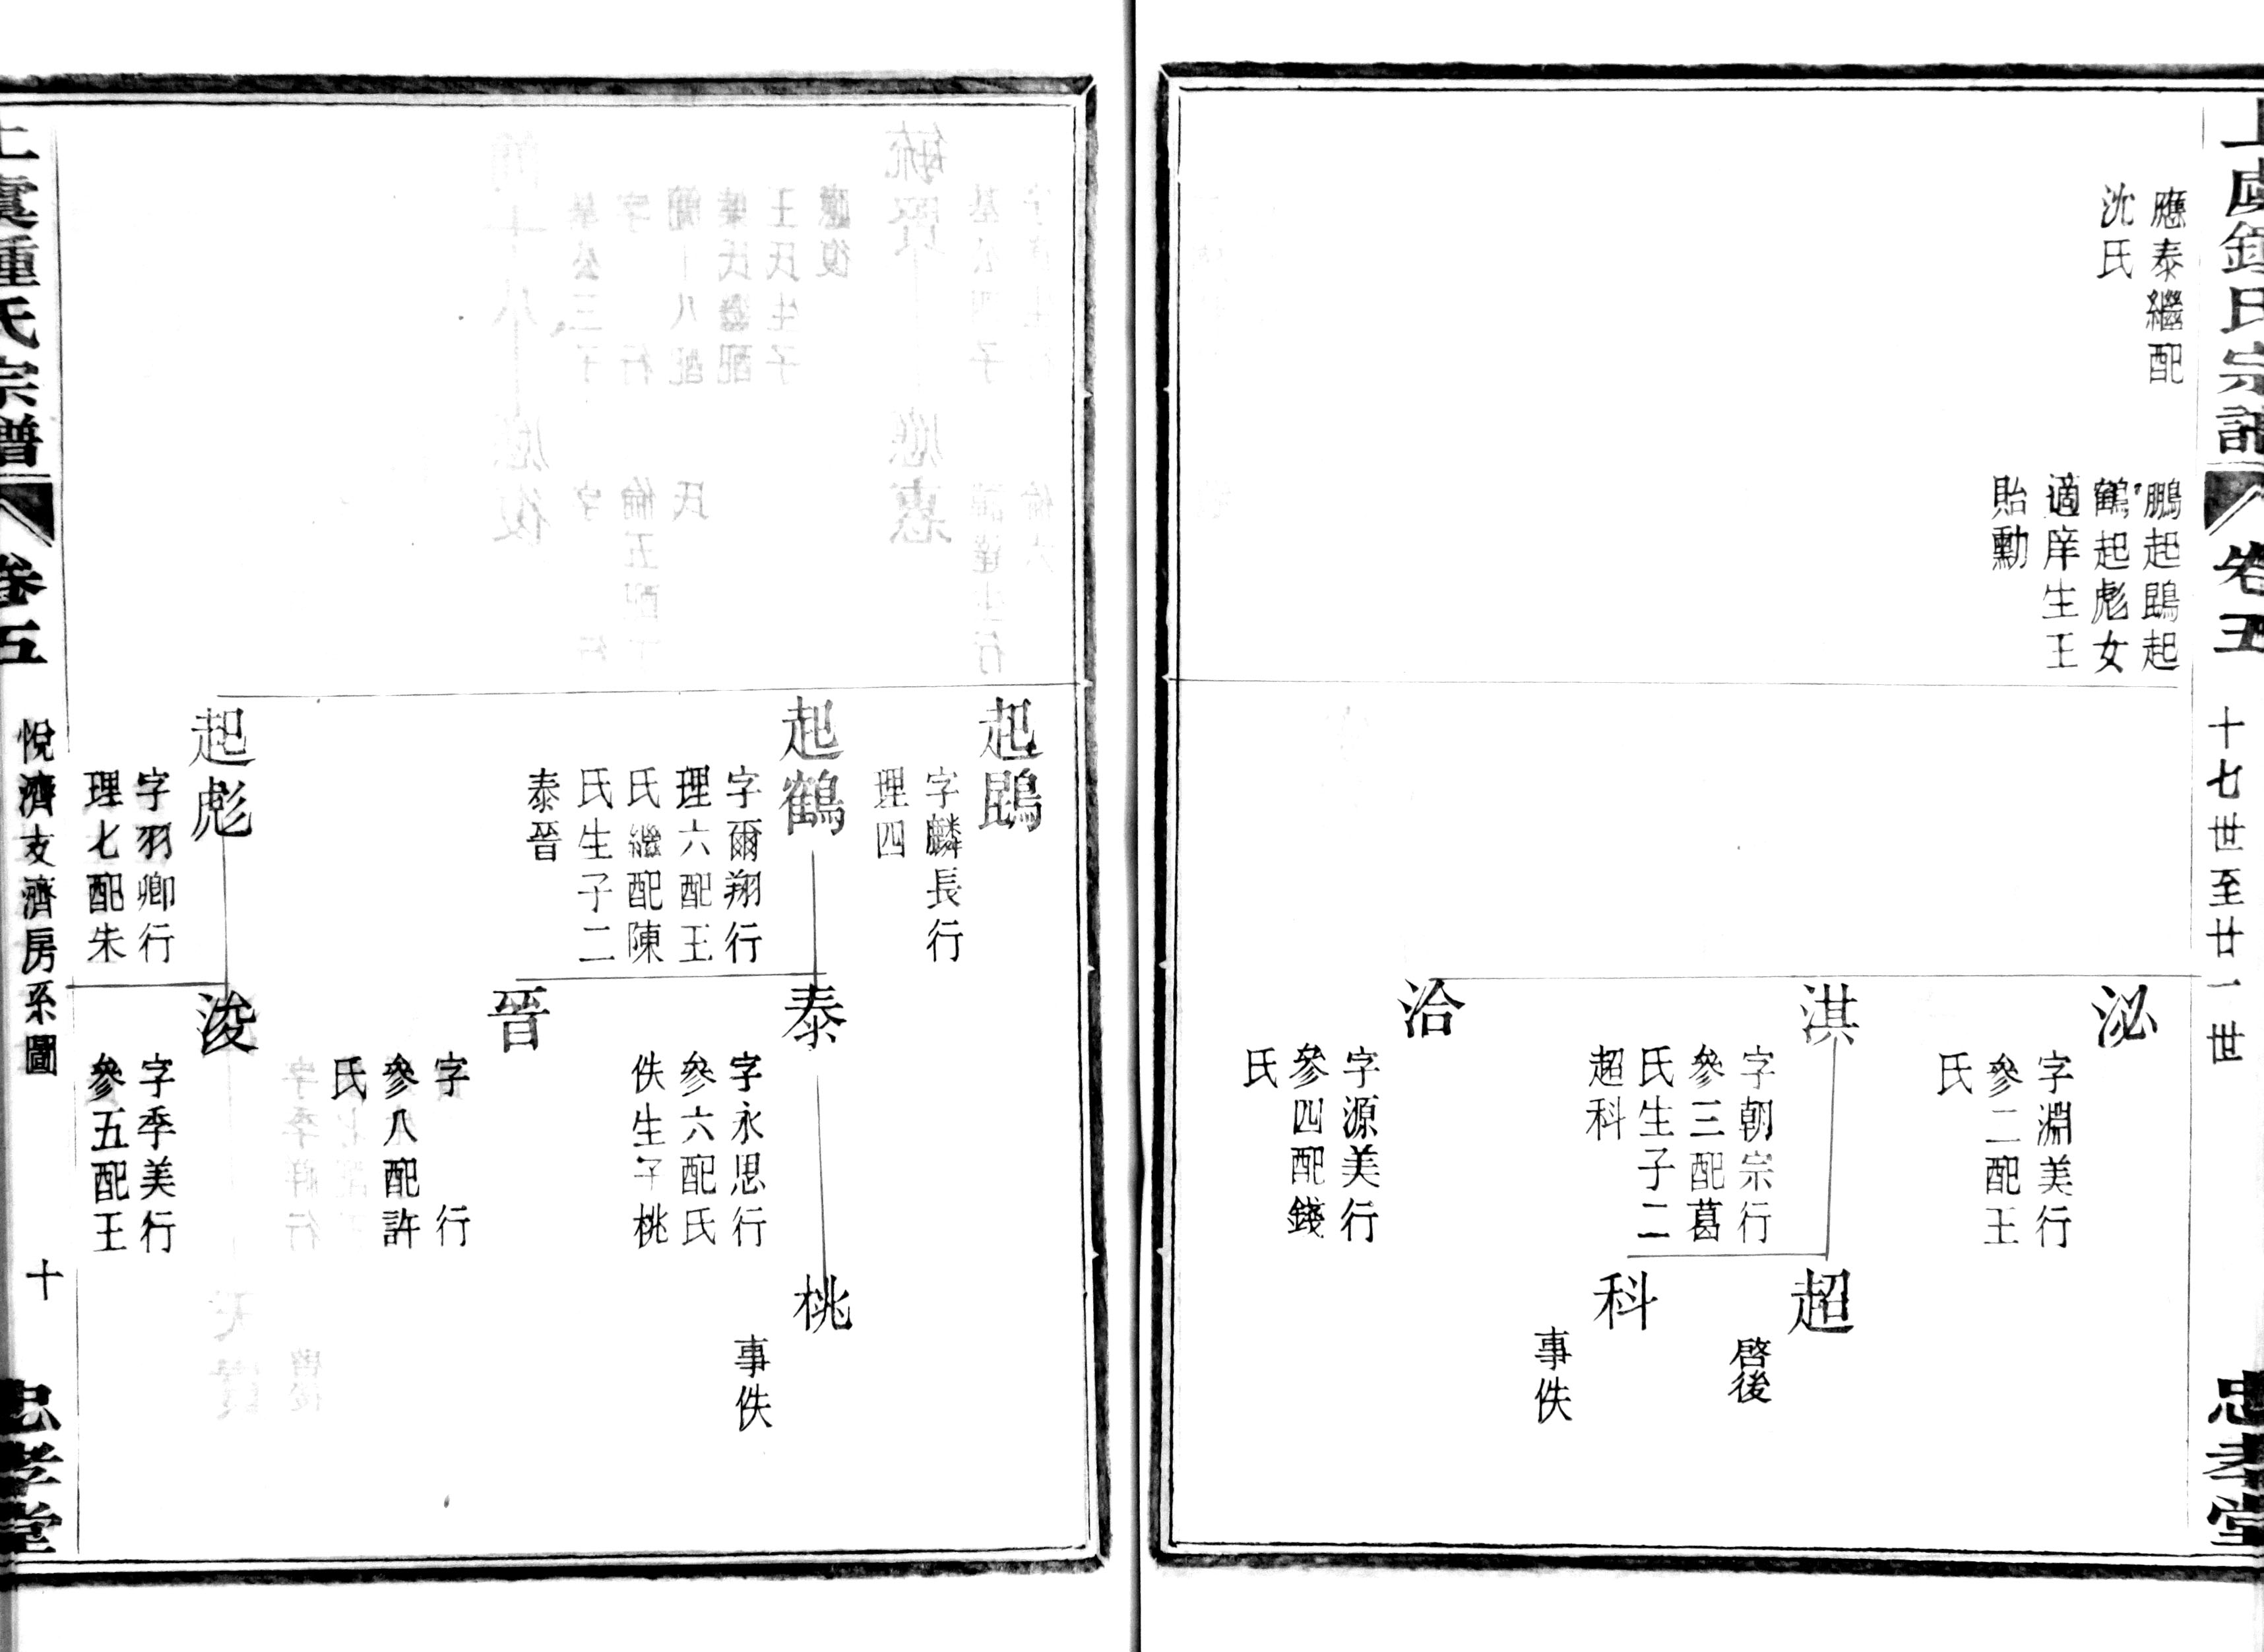 卷五
十七世至廿一世
忠孝堂
應泰繼配
沈氏
鵬起鵾起
鶴起彪女
適庠生王
貽勳
泌
字淵美行
參二配王
氏
淇
字朝宗行
參三配葛
氏生子二
超科
洽
字源美行
參四配錢
氏
超
啓後
科
事佚
起鵾
字麟長行
理四
起鶴
字爾翔行
理六配王
氏繼配陳
氏生子二
泰晉
起彪
字羽卿行
理七配朱
泰
字永思行
參六配氏
佚生子桃
晉
字 行
參八配許
氏
浚
字季美行
參五配王
桃
事佚
上虞鍾氏宗譜
卷五
悅濟支濟房系圖
十
忠孝堂